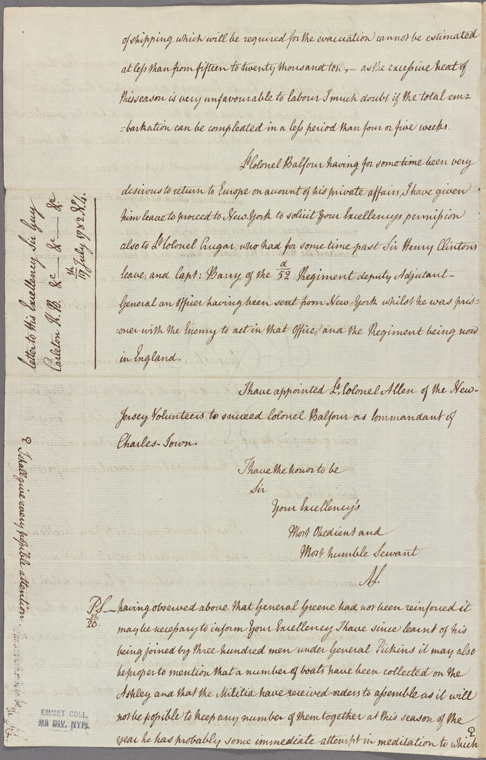 of shipping which will be required for the evacuation cannot be estimated
at less than from fifteen to twenty thousand ton, – as the excessive heat of
this season is very unfavourable to labour I much doubt if the total em=
=barkation can be compleated in a less period than four or five weeks.
Lt. Colonel Balfour having for some time been very
desirous to return to Europe on account of his private affairs, I have given
him leave to proceed to New York to solicit Your Excellencys permission
also to Lt. Colonel Eugar, who had for some time past Sir Henry Clintons
leave, and Capt: Barry of the 52d Regiment deputy Adjutant-
General an Officer having been sent from New York whilst he was pris-
-oner with the Enemy to act in that Office, and the Regiment being now
in England.
I have appointed Lt. Colonel Allen of the New-
Jersey Volunteers to succeed Colonel Balfour as Commandant of
Charles-Town.
I have the honor to be
Sir
Your Excellency's
Most Obedient and
Most humble Servant
AL.
PS – having observed above that General Greene had not been reinforced it
20. may be necessary to inform Your Excellency I have since learnt of his
being joined by three hundred men under General Pickins it may also
be proper to mention that a number of boats have been collected on the
Ashley and that the Militia have received orders to assemble as it will
not be possible to keep any number of them together at this season of the
year he has probably some immediate attempt in meditation to which
I shall give every possible attention.
letter to His Excellency Sir Guy
Carleton K. B. &c – &c – &c
19th July 1782
EMMET COLL.
MS DIV. NYPL